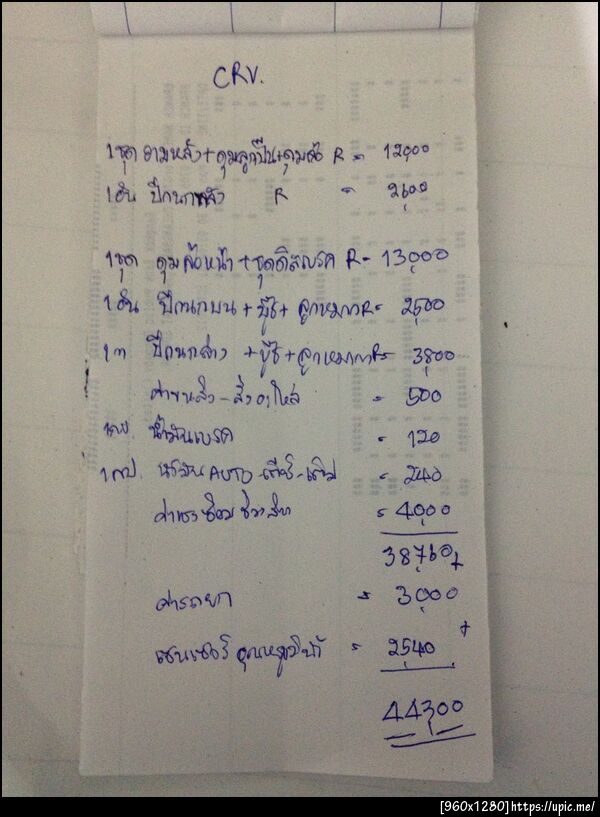 CRV.
1 ชุด อามหลัง + ดุมลูกปืน + ดุมล้อ R = 12,000
1 อัน ปีกนกหลัง R = 2,600
1 ชุด ดุมล้อหน้า + ชุดดิสเบรค R = 13,000
1 อัน ปีกนกบน + บู๊ช + ลูกหมาก R = 2,500
1 ปีกนกล่าง + บู๊ช + ลูกหมาก R = 3,800
ค่าขนส่ง - สั่งอะไหล่ = 500
น้ำมันเบรค = 120
1 กป. น้ำมัน AUTO - = 240
ค่าแรง = 4,000
38,760
ค่ารถยก = 3,000
เซนเซอร์อุณหภูมิน้ำ = 2,540
44,300
[960x1280]https://upic.me/